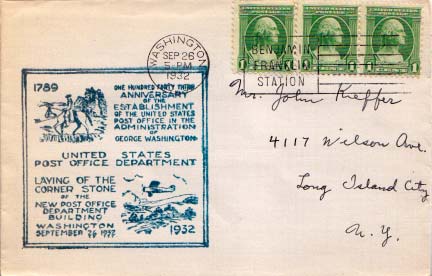 WASHINGTON
SEP 26
5-PM
1932
BENJAMIN
FRANKLIN
STATION
1 1
1 1
1 1
1789
ONE HUNDRED FORTY THIRD
ANNIVERSARY
OF THE
ESTABLISHMENT
OF THE UNITED STATES
POST OFFICE IN THE
ADMINISTRATION
OF
GEORGE WASHINGTON
UNITED STATES
POST OFFICE DEPARTMENT
LAYING OF THE
CORNER STONE
OF THE
NEW POST OFFICE
DEPARTMENT
BUILDING
WASHINGTON
SEPTEMBER 26 1932
1932
Mr. John Kieffer
4117 Wilson Ave.
Long Island City
N.Y.